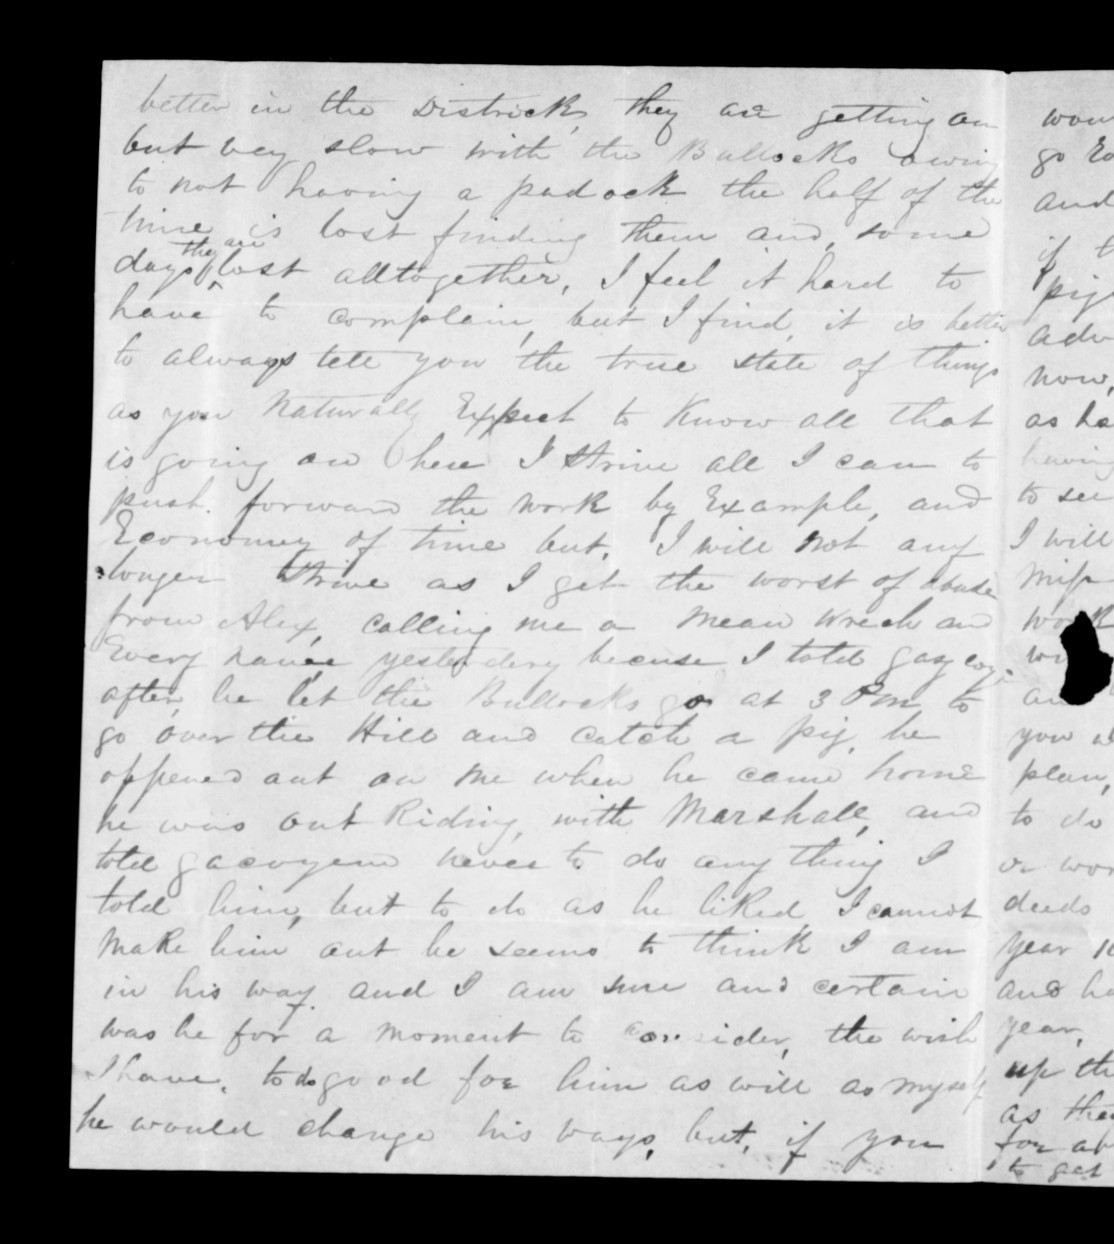 better in the Districk, they are getting on
but vey slow with the Bullocks owing
to not having a padock the half of the
time is lost finding them and, some
days they are lost alltogether, I feel it hard to
have to complain, but I find it is better
to always tell you the true state of things
as you Naturally Expect to Know all that
is going on here I Strive all I can to
push forward the work by Example, and
Economy of time but, I will not any
longer Strive as I get the worst of abuse
from Alex, calling me a mean wrech and
Every name yesterday becuse I told
after he let the Bullocks go at 3 Pm to
go over the Hill and catch a pig, he
oppened out on me when he came home
he was out Riding, with Marshall, and
told never to do any thing I
told him, but to do as he liked I cannot
make him out he seems to think I am
in his way and I am sure and certain
was he for a moment to consider, the wish
I have, to do good for him as will as myself
he would change his ways, but, if you
go
and
if
now,
as
to see
I will
you
plan,
to do
or
deeds
year
and
year,
up
as
for
to get